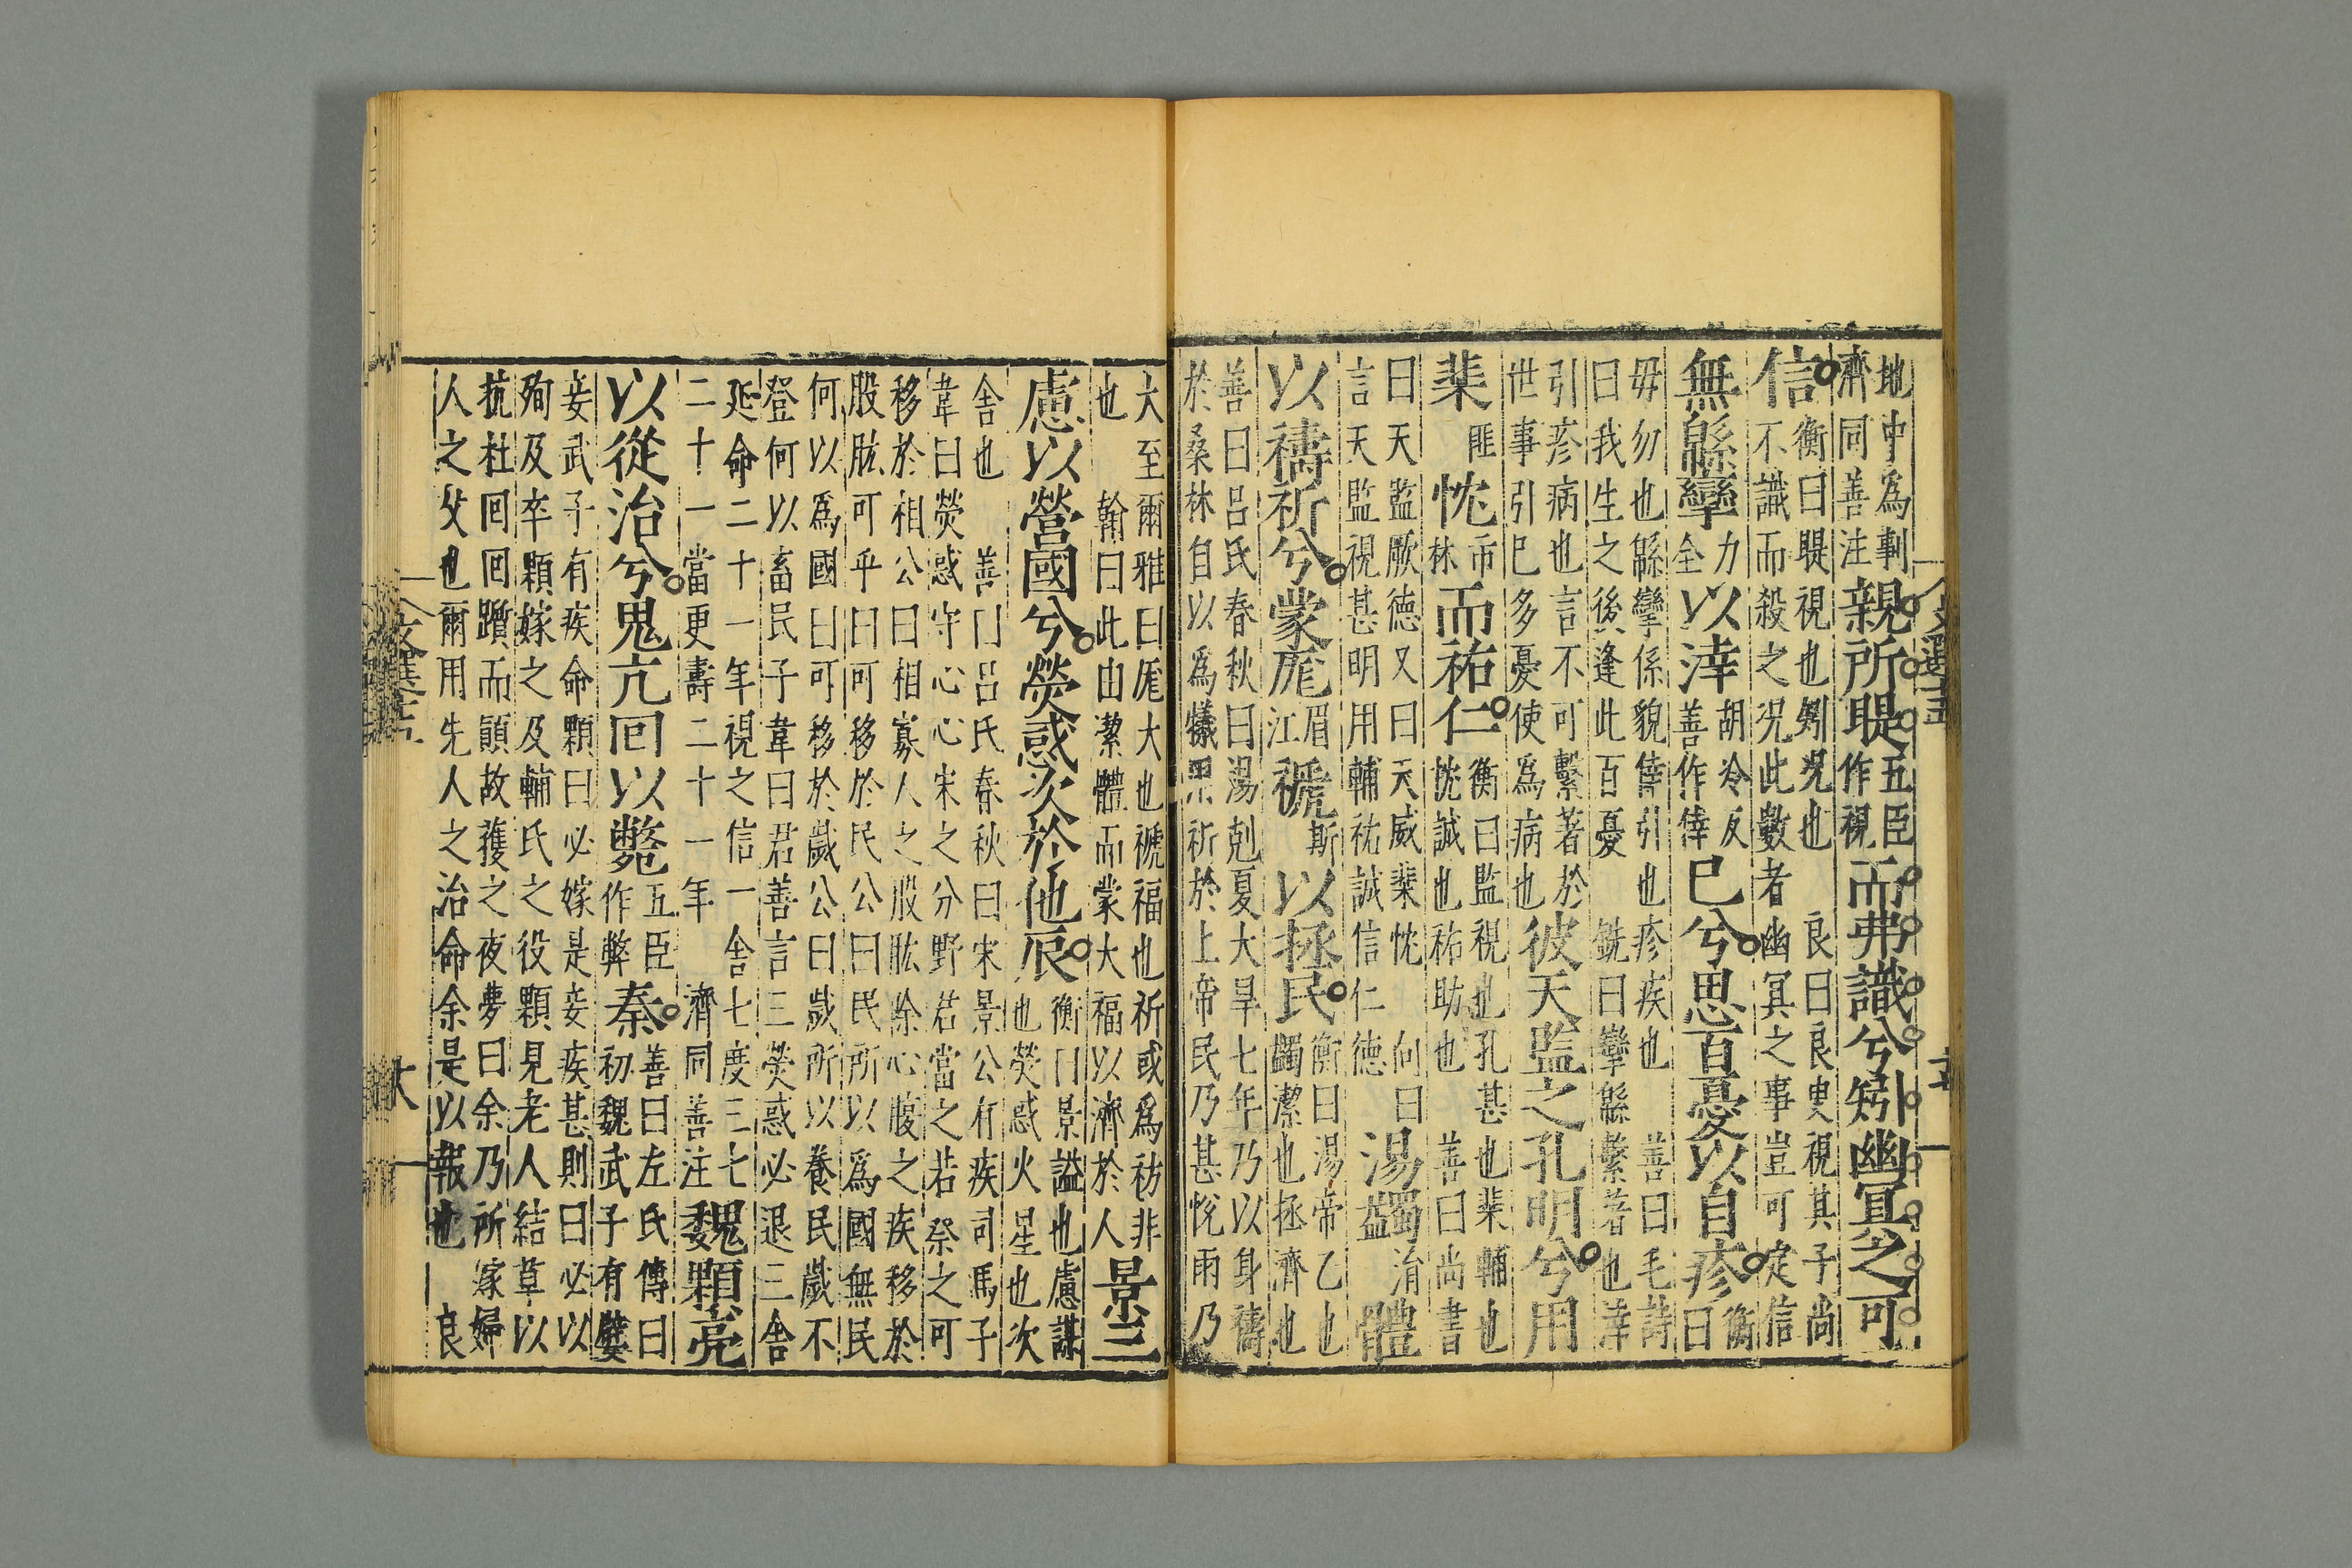 地中爲剚
濟同善注
親所睼
五臣
作視
而弗識兮矧幽冥之可
信
衡曰睼視也矧况也
不識而殺之况此數者
良曰良叟視其子尚
幽冥之事豈可定信
無緜攣
力
全
以涬
胡冷反
善作倖
巳兮思百憂以自疹
衡
曰
毋勿也緜攣係貌倖引也疹疾也善曰毛詩
曰我生之後逢此百憂銑曰攣緜繫著也涬
引疹病也言不可繫著於
世事引巳多憂使爲病也
彼天監之孔明兮用
棐
匪
忱
市
林
而祐仁
衡曰監視也孔甚也棐輔也
忱誠也祐助也善曰尚書
曰天監厥德又曰天威棐忱向曰
言天監視甚明用輔祐誠信仁德
湯蠲
㳙
體
以禱祈兮蒙厖
眉
江
禠
斯
以拯民
衡曰湯帝乙也
蠲潔也拯濟也
善曰呂氏春秋曰湯剋夏大旱七年乃以身禱
於桑林自以爲犧用祈於上帝民乃甚悅雨乃
大至爾雅曰厖大也禠福也祈或爲祊非
也翰曰此由潔體而蒙大福以濟於人
景三
慮以營國兮熒惑次於他辰
衡曰景謚也慮謀
也熒惑火星也次
舍也善曰呂氏春秋曰宋景公有疾司馬子
韋曰熒惑守心心宋之分野君當之若祭之可
移於相公曰相寡人之股肱除心腹之疾移於
股肱可乎曰可移於民公曰民所以爲國無民
何以爲國曰可移於歲公曰歲所以養民歲不
登何以畜民子韋曰君善言三熒惑必退三舍
延命二十一年視之信一舍七度三七
二十一當更壽二十一年濟同善注
魏顆亮
以從治兮鬼亢回以斃
五臣
作弊
秦
善曰左氏傳曰
初魏武子有嬖
妾武子有疾命顆曰必嫁是妾疾甚則曰必以
殉及卒顆嫁之及輔氏之役顆見老人結草以
抗杜回回躓而顛故獲之夜夢曰余乃所嫁婦
人之父也爾用先人之治命余是以報也良
文選十五
六